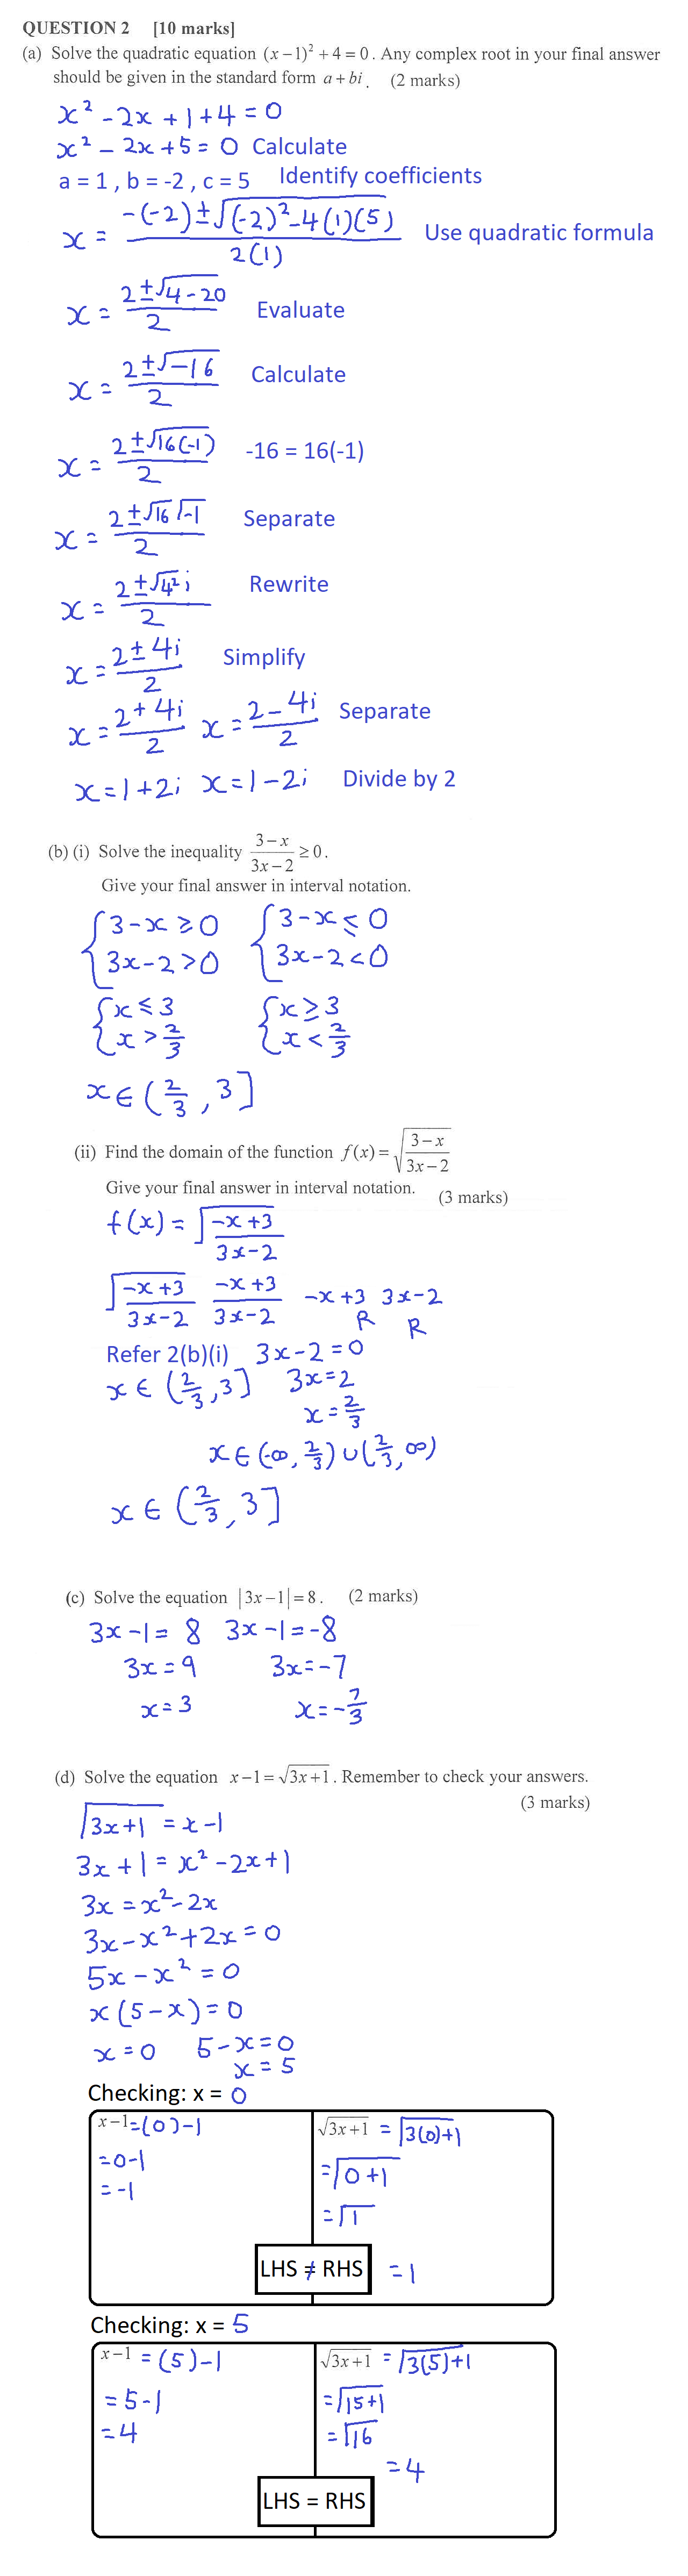 QUESTION 2 [10 marks]
(a) Solve the quadratic equation (x−1)² + 4 = 0. Any complex root in your final answer
should be given in the standard form a + bi. (2 marks)
x² - 2x + 1 + 4 = 0
x² - 2x + 5 = 0 Calculate
a = 1 , b = -2 , c = 5 Identify coefficients
x = (-(-2) ± √((-2)² - 4(1)(5))) / 2(1) Use quadratic formula
x = (2 ± √(4 - 20)) / 2 Evaluate
x = (2 ± √(-16)) / 2 Calculate
x = (2 ± √(16(-1))) / 2 -16 = 16(-1)
x = (2 ± √16 √-1) / 2 Separate
x = (2 ± √(4²) i) / 2 Rewrite
x = (2 ± 4i) / 2 Simplify
x = (2 + 4i) / 2 x = (2 - 4i) / 2 Separate
x = 1 + 2i x = 1 - 2i Divide by 2
(b) (i) Solve the inequality (3 − x)/(3x − 2) ≥ 0.
Give your final answer in interval notation.
{ 3 - x ≥ 0 { 3 - x ≤ 0
3x - 2 > 0 3x - 2 < 0
{ x ≤ 3 { x ≥ 3
x > 2/3 x < 2/3
x ∈ (2/3 , 3]
(ii) Find the domain of the function f(x) = √((3 − x)/(3x − 2))
Give your final answer in interval notation. (3 marks)
f(x) = √((-x + 3)/(3x - 2))
√((-x + 3)/(3x - 2)) (-x + 3)/(3x - 2) -x + 3 3x - 2
R R
Refer 2(b)(i) 3x - 2 = 0
x ∈ (2/3 , 3] 3x = 2
x = 2/3
x ∈ (-∞, 2/3) ∪ (2/3, ∞)
x ∈ (2/3 , 3]
(c) Solve the equation |3x − 1| = 8. (2 marks)
3x - 1 = 8 3x - 1 = -8
3x = 9 3x = -7
x = 3 x = -7/3
(d) Solve the equation x − 1 = √(3x + 1). Remember to check your answers.
(3 marks)
√(3x + 1) = x - 1
3x + 1 = x² - 2x + 1
3x = x² - 2x
3x - x² + 2x = 0
5x - x² = 0
x(5 - x) = 0
x = 0 5 - x = 0
x = 5
Checking: x = 0
x−1 = (0) - 1 √(3x+1) = √(3(0)+1)
= 0 - 1 = √(0 + 1)
= -1 = √1
LHS ≠ RHS = 1
Checking: x = 5
x−1 = (5) - 1 √(3x+1) = √(3(5)+1)
= 5 - 1 = √(15+1)
= 4 = √16
= 4
LHS = RHS